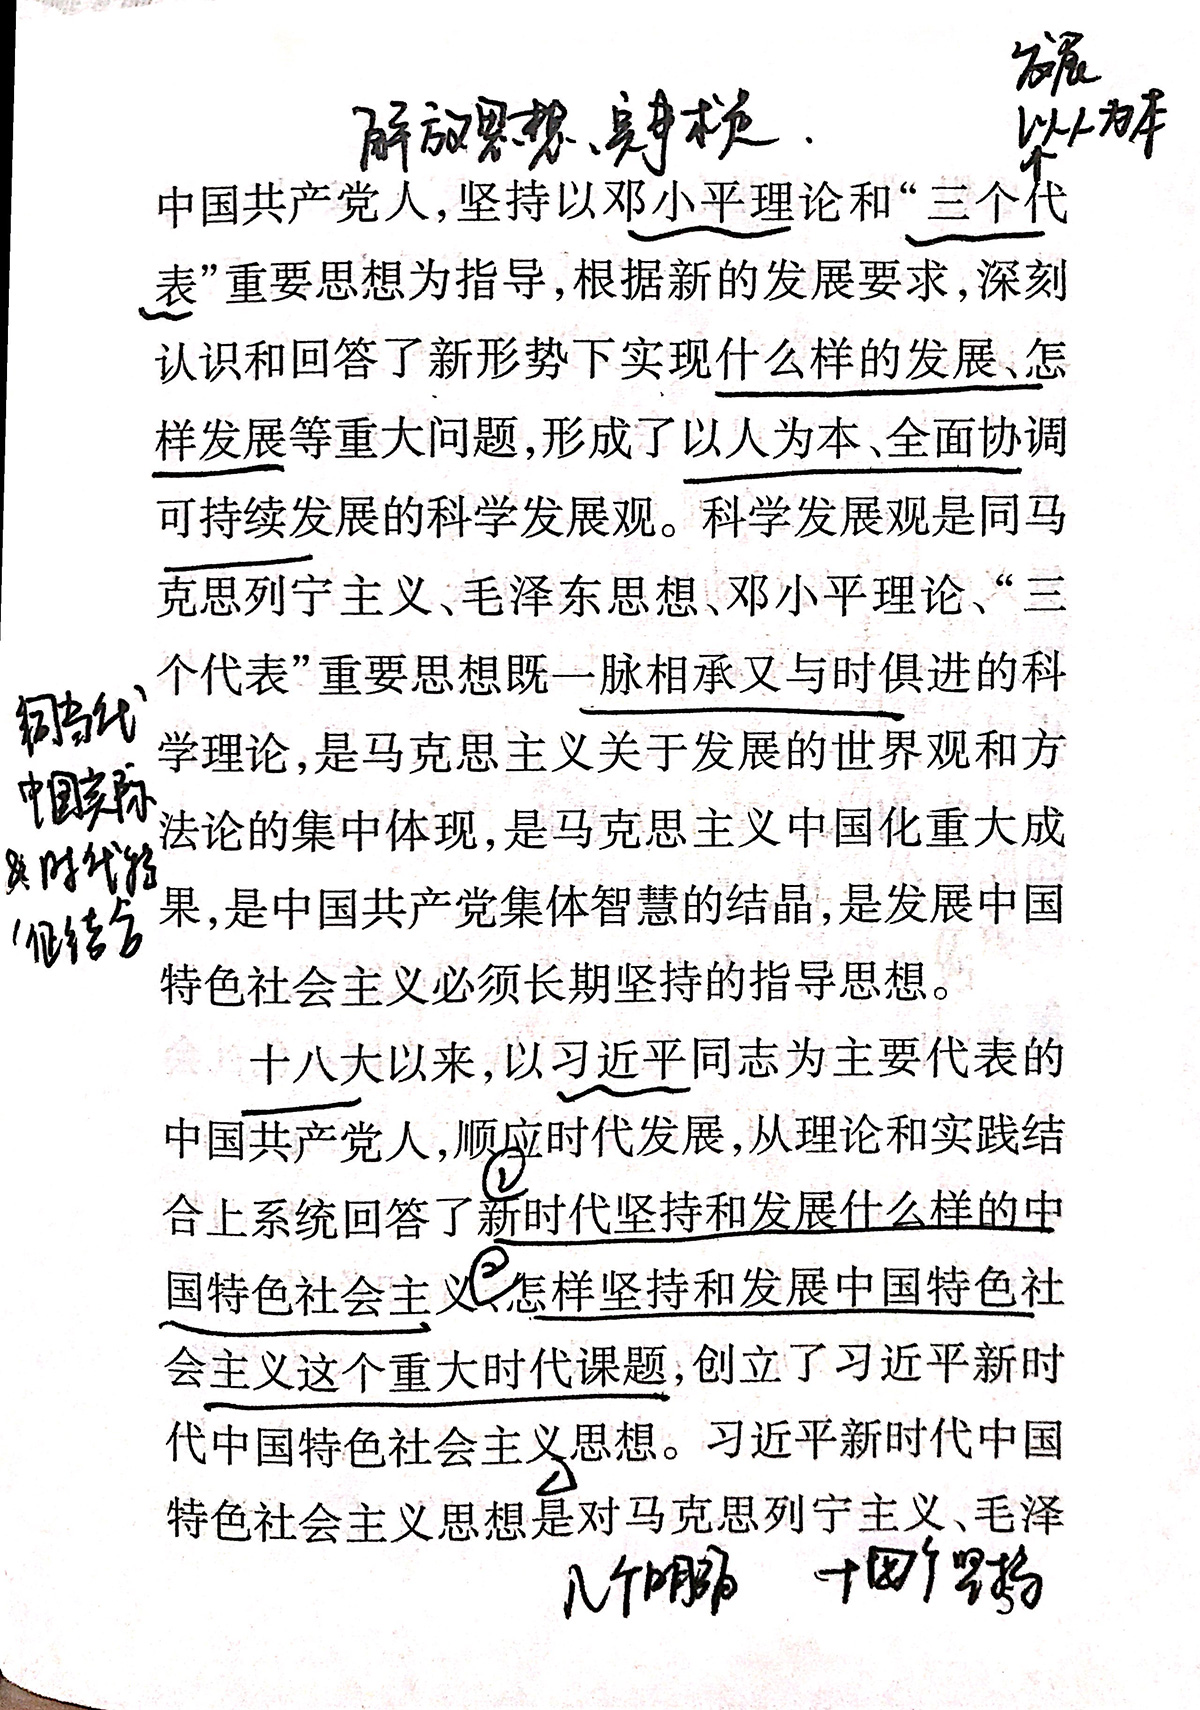 发展
以人为本
解放思想、实事求是.
中国共产党人，坚持以邓小平理论和“三个代
表”重要思想为指导，根据新的发展要求，深刻
认识和回答了新形势下实现什么样的发展、怎
样发展等重大问题，形成了以人为本、全面协调
可持续发展的科学发展观。科学发展观是同马
克思列宁主义、毛泽东思想、邓小平理论、“三
个代表”重要思想既一脉相承又与时俱进的科
学理论，是马克思主义关于发展的世界观和方
法论的集中体现，是马克思主义中国化重大成
果，是中国共产党集体智慧的结晶，是发展中国
特色社会主义必须长期坚持的指导思想。
同当代
中国实际
时代特
征结合
十八大以来，以习近平同志为主要代表的
中国共产党人，顺应时代发展，从理论和实践结
①
合上系统回答了新时代坚持和发展什么样的中
②
国特色社会主义、怎样坚持和发展中国特色社
会主义这个重大时代课题，创立了习近平新时
代中国特色社会主义思想。习近平新时代中国
特色社会主义思想是对马克思列宁主义、毛泽
八个明确 十四个坚持